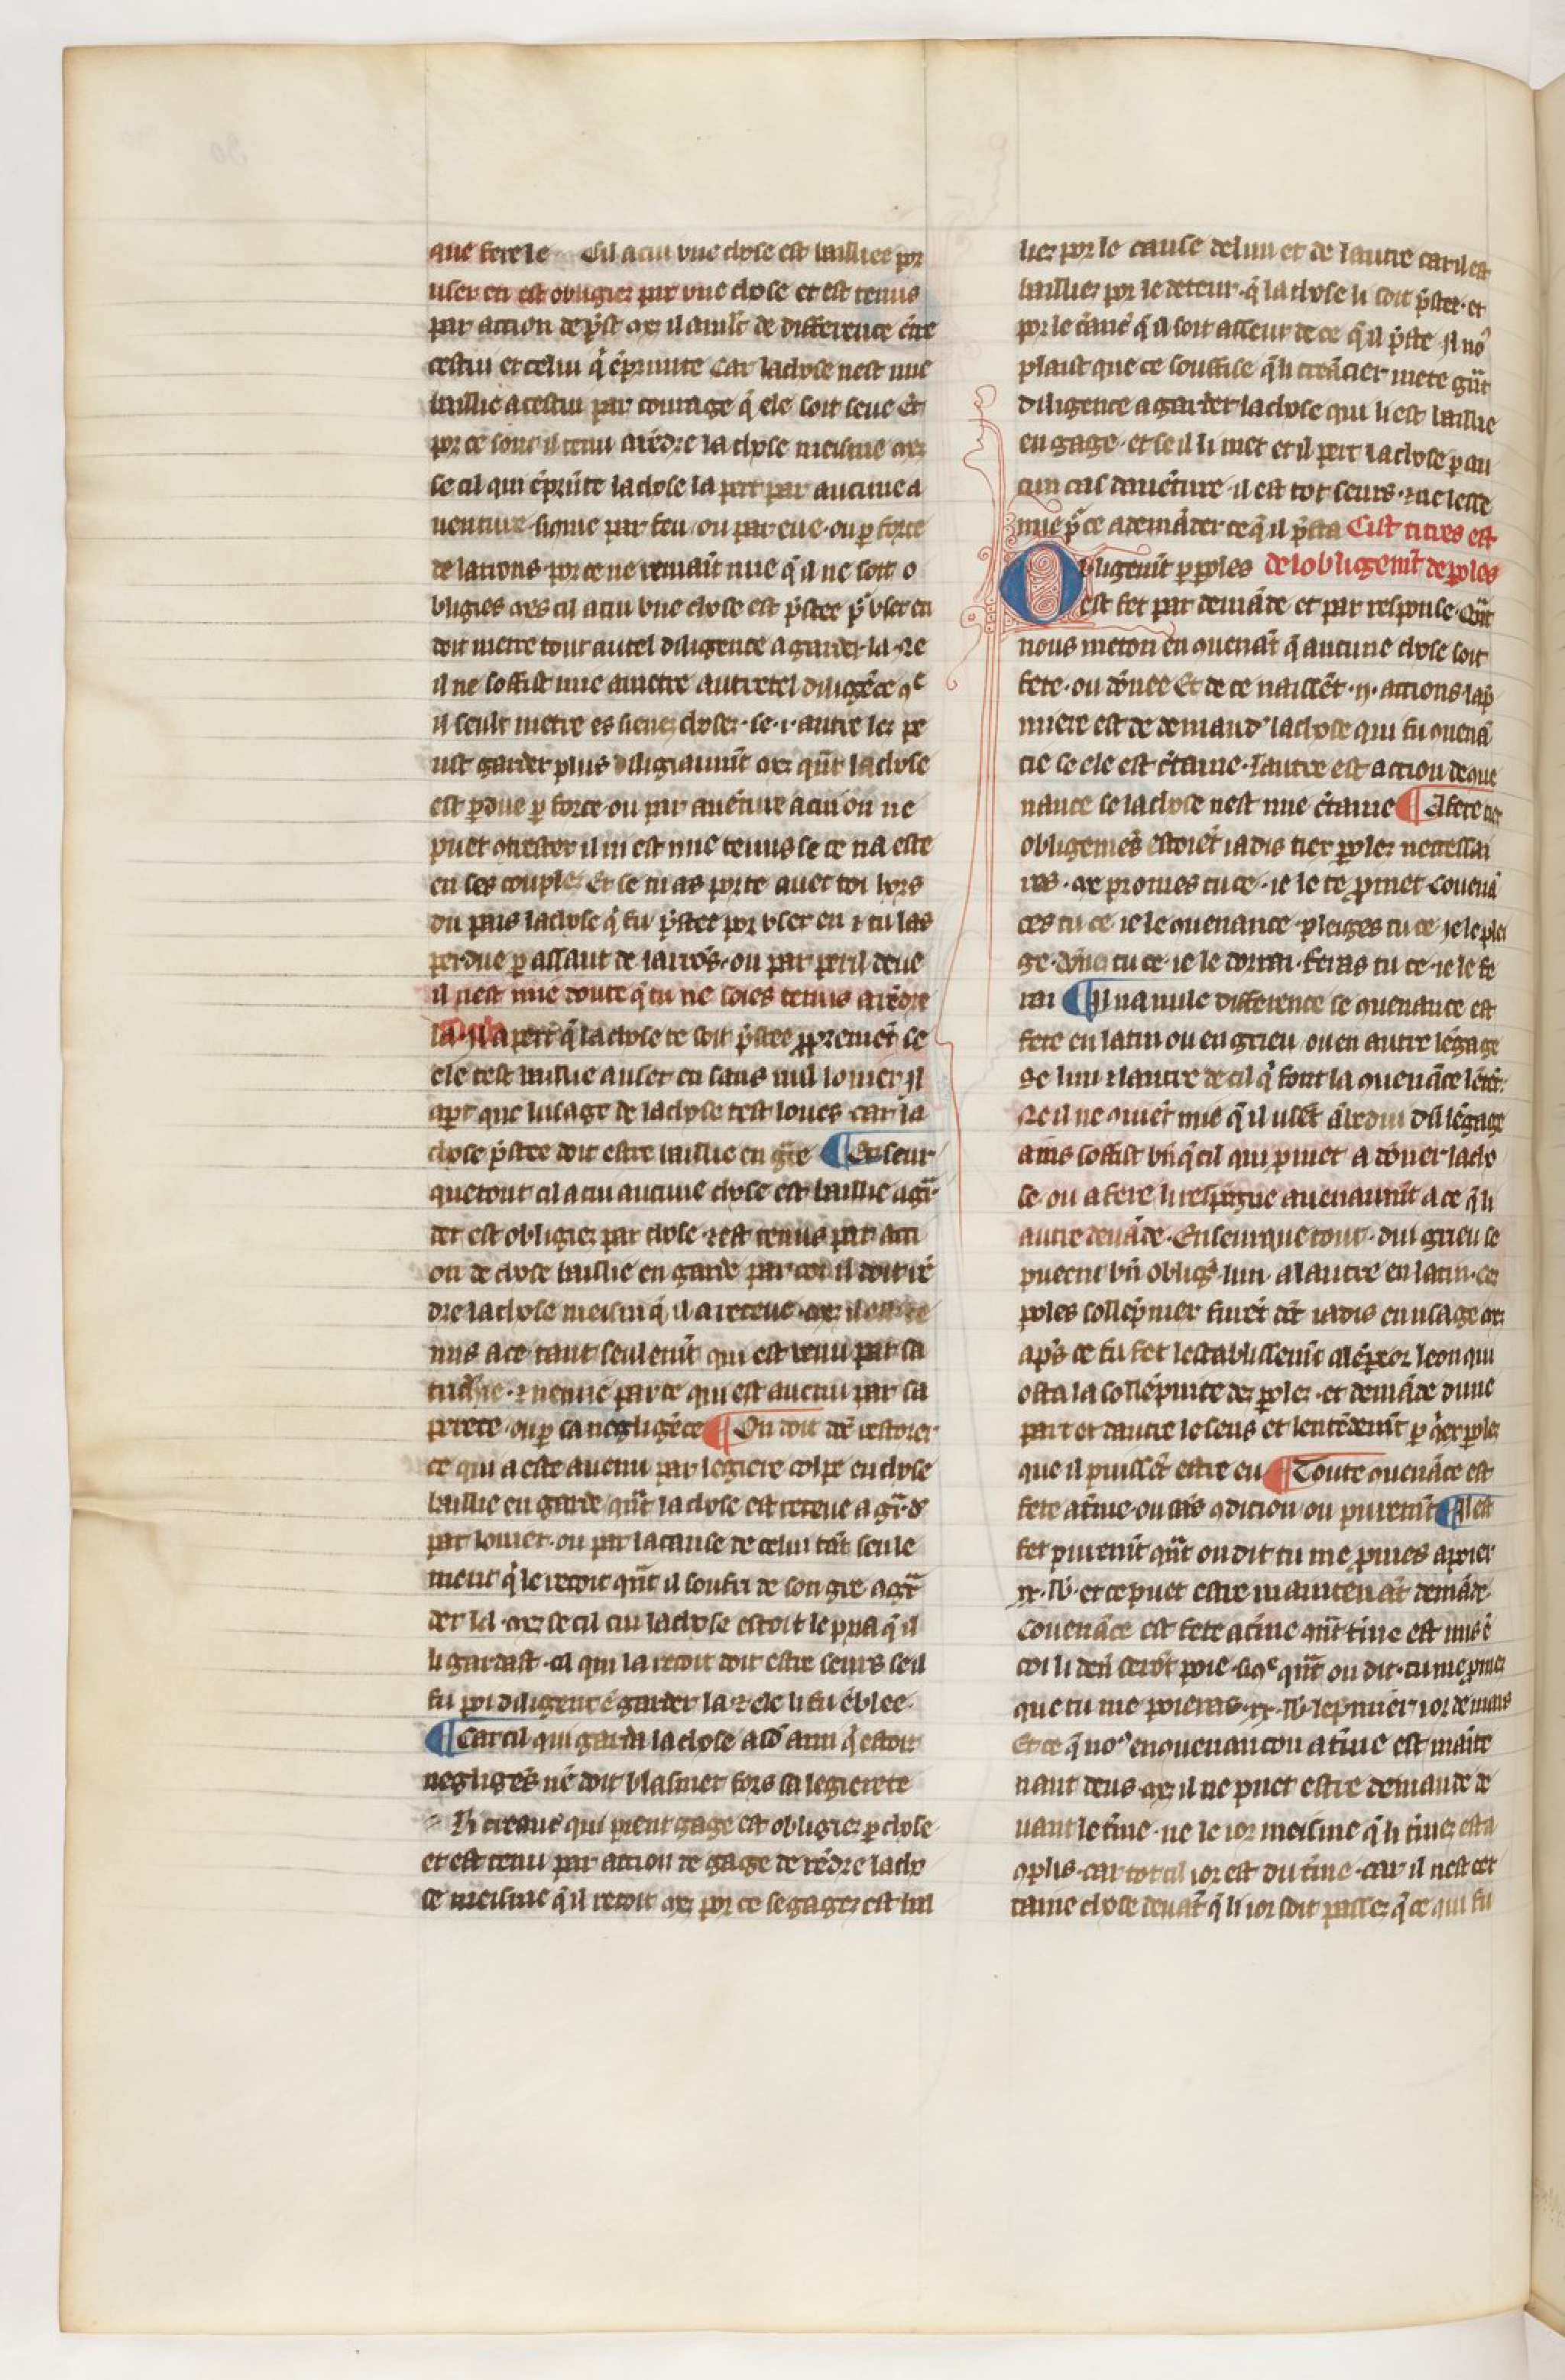 que fere le Cil a cui une chose est bailliee por
user en est obligiez par une chose et est tenus
par action de p̃st mez il a mult de difference ẽtre
cestui et celui q̃ ẽprunte car la chose nest mie
baillie a cestui par courage q̃ ele soit seue Et
por ce sont il tenu a rẽdre la chose meisme mez
se cil qui ẽprũte la chose la pert par aucune a
uenture si9me par feu ou par eue ou p̱ force
de larrons por ce ne remaĩt mie q̃ il ne soit o
bligies mes cil a cui une chose est p̃stee p̃ user en
doit metre tout autel diligence a garder la Ne
il ne soffist mie a metre autretel diligẽce 9e
il seult metre es sienez chosez se .i. autre lez pe
ust garder plus diligiaumt̃ mez qñt la chose
est p̱due p̱ force ou par auẽture a cui on ne
puet 9trester il ni est mie tenus se ce na este
en ses coupez Et se tu as porte auec toi hors
du pais la chose q̃ fu p̃stee por user en ⁊ tu las
perdue p̱ assaut de larrõs ou par peril deue
il nest mie doute q̃ tu ne soies tenus a rẽdre
la Il apert q̃ la chose te soit p̃stee p̱premẽt se
ele test baillie a user en sans nul louier Il
ap̱t que lusage de la chose test loues car la
chose p̃stee doit estre baillie en gr̃e ¶ En seur
quetout cil a cui aucune chose est baillie a gar̃
der est obligiez par chose ⁊ est tenus par acti
on de chose baillie en garde par coi il doit rẽ
dre la chose meism q̃ il a receue mez il est te
nus a ce tant seulemt̃ qui est uenu par sa
tricherie ⁊ nemie par ce qui est auenu par sa
perece ou p̱ sa negligẽce ¶ On doit dõ restorer
ce qui a este auenu par legiere colpe en chose
baillie en garde qñt la chose est receue a gar̃d̃
par louier ou par la cause de celui tãt seule
ment q̃ le recoit qñt il soufri de son gre a gar̃
der la mez se cil cui la chose estoit le p̱pia q̃ il
li gardast cil qui la recoit doit estre seurs se il
fu poi diligent ẽ garder la ⁊ ele li fu ẽblee
¶ Car cil qui garda la chose a sõ ami q̃ estoit
negligẽs ne doit blasmer fors sa legierete
Li creans qui prent gage est obligiez p̱ chose
et est tenu par action de gage de rẽdre la cho
se meisme q̃ il recoit mez por ce se gagez est bail
liez por le cause de lun et de lautre car il est
bailliez por le deteur q̃ la chose li soit p̃stee et
por le c̃ancier q̃ il soit asseur de ce q̃ il p̃ste Il no9
plaist que ce souffise q̃ li creãcier mete grãt
diligence a garder la chose qui li est baillie
en gage et se il li met et il pert la chose p̱ au
cun cas dauẽture il est tot seurs ⁊ ne lesse
mie p̃ ce a demãder ce q̃ il p̃sta Cist titres est
Obligemt̃ p̱ p̱oles de lobligemt̃ de p̱oles
est fet par demãde et par response Qñt
nous meton en 9uenãt q̃ aucune chose soit
fete ou dõnee Et de ce naissẽt .ij. actions la p̃
miere est de demand̃ la chose qui fu 9uenã
cie se ele est c̃taine lautre est action de 9ue
nance se la chose nest mie c̃taine ¶ A fere ces
obligemẽs estoiẽt iadis tiex p̱olez necessai
res me promes tu ce ie le te p̱met Couenã
ces tu ce ie le 9uenance pleiges tu ce ie le plei
ge donras tu ce ie le dorrai feras tu ce ie le fe
rai ¶ Il na nule difference se 9uenance est
fete en latin ou en grieu ou en autre lẽgage
Se lun ⁊ lautre de cil q̃ font la 9uenãce lẽtẽt
Ne il ne 9uiẽt mie q̃ il usẽt ãbedui du lẽgage
ains soffist bñ q̃ cil qui p̱met a dõner la cho
se ou a fere li respõgne auenaumt̃ a ce q̃ li
autre demãde En seurquetout dui grieu se
pueent bñ oblig̃ lun a lautre en latin Ces
p̱oles sollẽpniex furẽt dõc iadis en usage mez
ap̃s ce fu fet lestablissemt̃ a lẽp̱eor leon qui
osta la sollẽpnite dez p̱olez et demãde dune
part et dautre le sens et lentẽdemt̃ p̱ q̃lex p̱olez
que il puissẽt estre eu ¶ Toute 9uenãce est
fete a tiñe ou sãs 9dicion ou puremt̃ ¶ Il est
fet puremt̃ qñt on dit tu me p̱mes a poier
xx. lb. et ce puet estre maintenãt demãde
Couenãce est fete a tiñe qñt tiñe est mis ẽ
coi li den̄ serõt poie si9e qñt on dit tu me p̱mez
que tu me poieras .xx. lb. le p̃mier ior de mais
Et ce q̃ no9 en9uenancon a tiñe est maite
nant deus mez il ne puet estre demande de
uant le tiñe ne le ior meisme q̃ li tiñez est a
9plis car tot cil ior est du tiñe car il nest cer
taine chose deuãt q̃ li ior soit passez q̃ ce qui fu